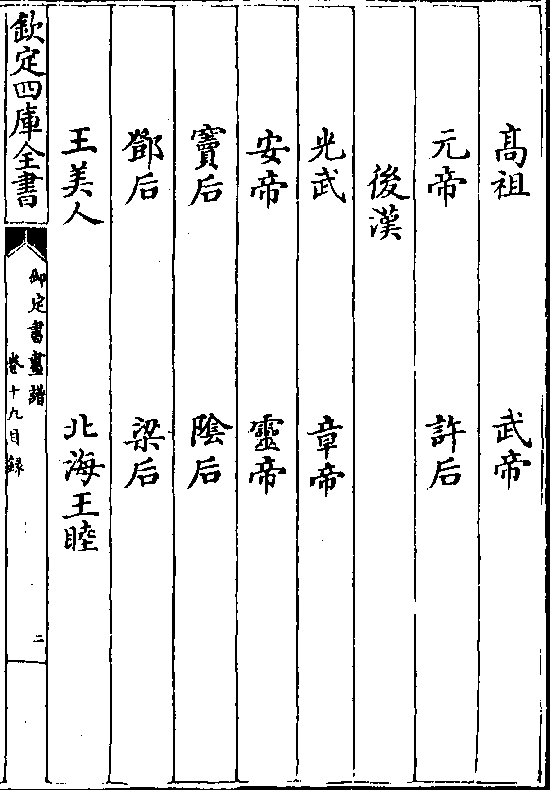 高祖 武帝
元帝 許后
後漢
光武 章帝
安帝 靈帝
竇后 陰后
鄧后 梁后
王美人 北海王睦
欽定四庫全書
御定書畫譜
卷十九目録
二